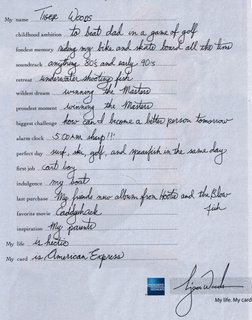 My name Tiger Woods
childhood ambition to beat dad in a game of golf
fondest memory riding my bike and skate board all the time
soundtrack anything 80's and early 90's
retreat underwater shooting fish
wildest dream winning the Masters
proudest moment winning the Masters
biggest challenge how can I become a better person tomorrow
alarm clock 5:00AM sharp!!!
perfect day surf, ski, golf, and spearfish in the same day
first job cart boy
indulgence my boat
last purchase My friends new album from Hootie and the Blow
fish
favorite movie Caddyshack
inspiration My parents
My life is hectic
My card is American Express
AMERICAN EXPRESS
Tiger Woods
My life. My card